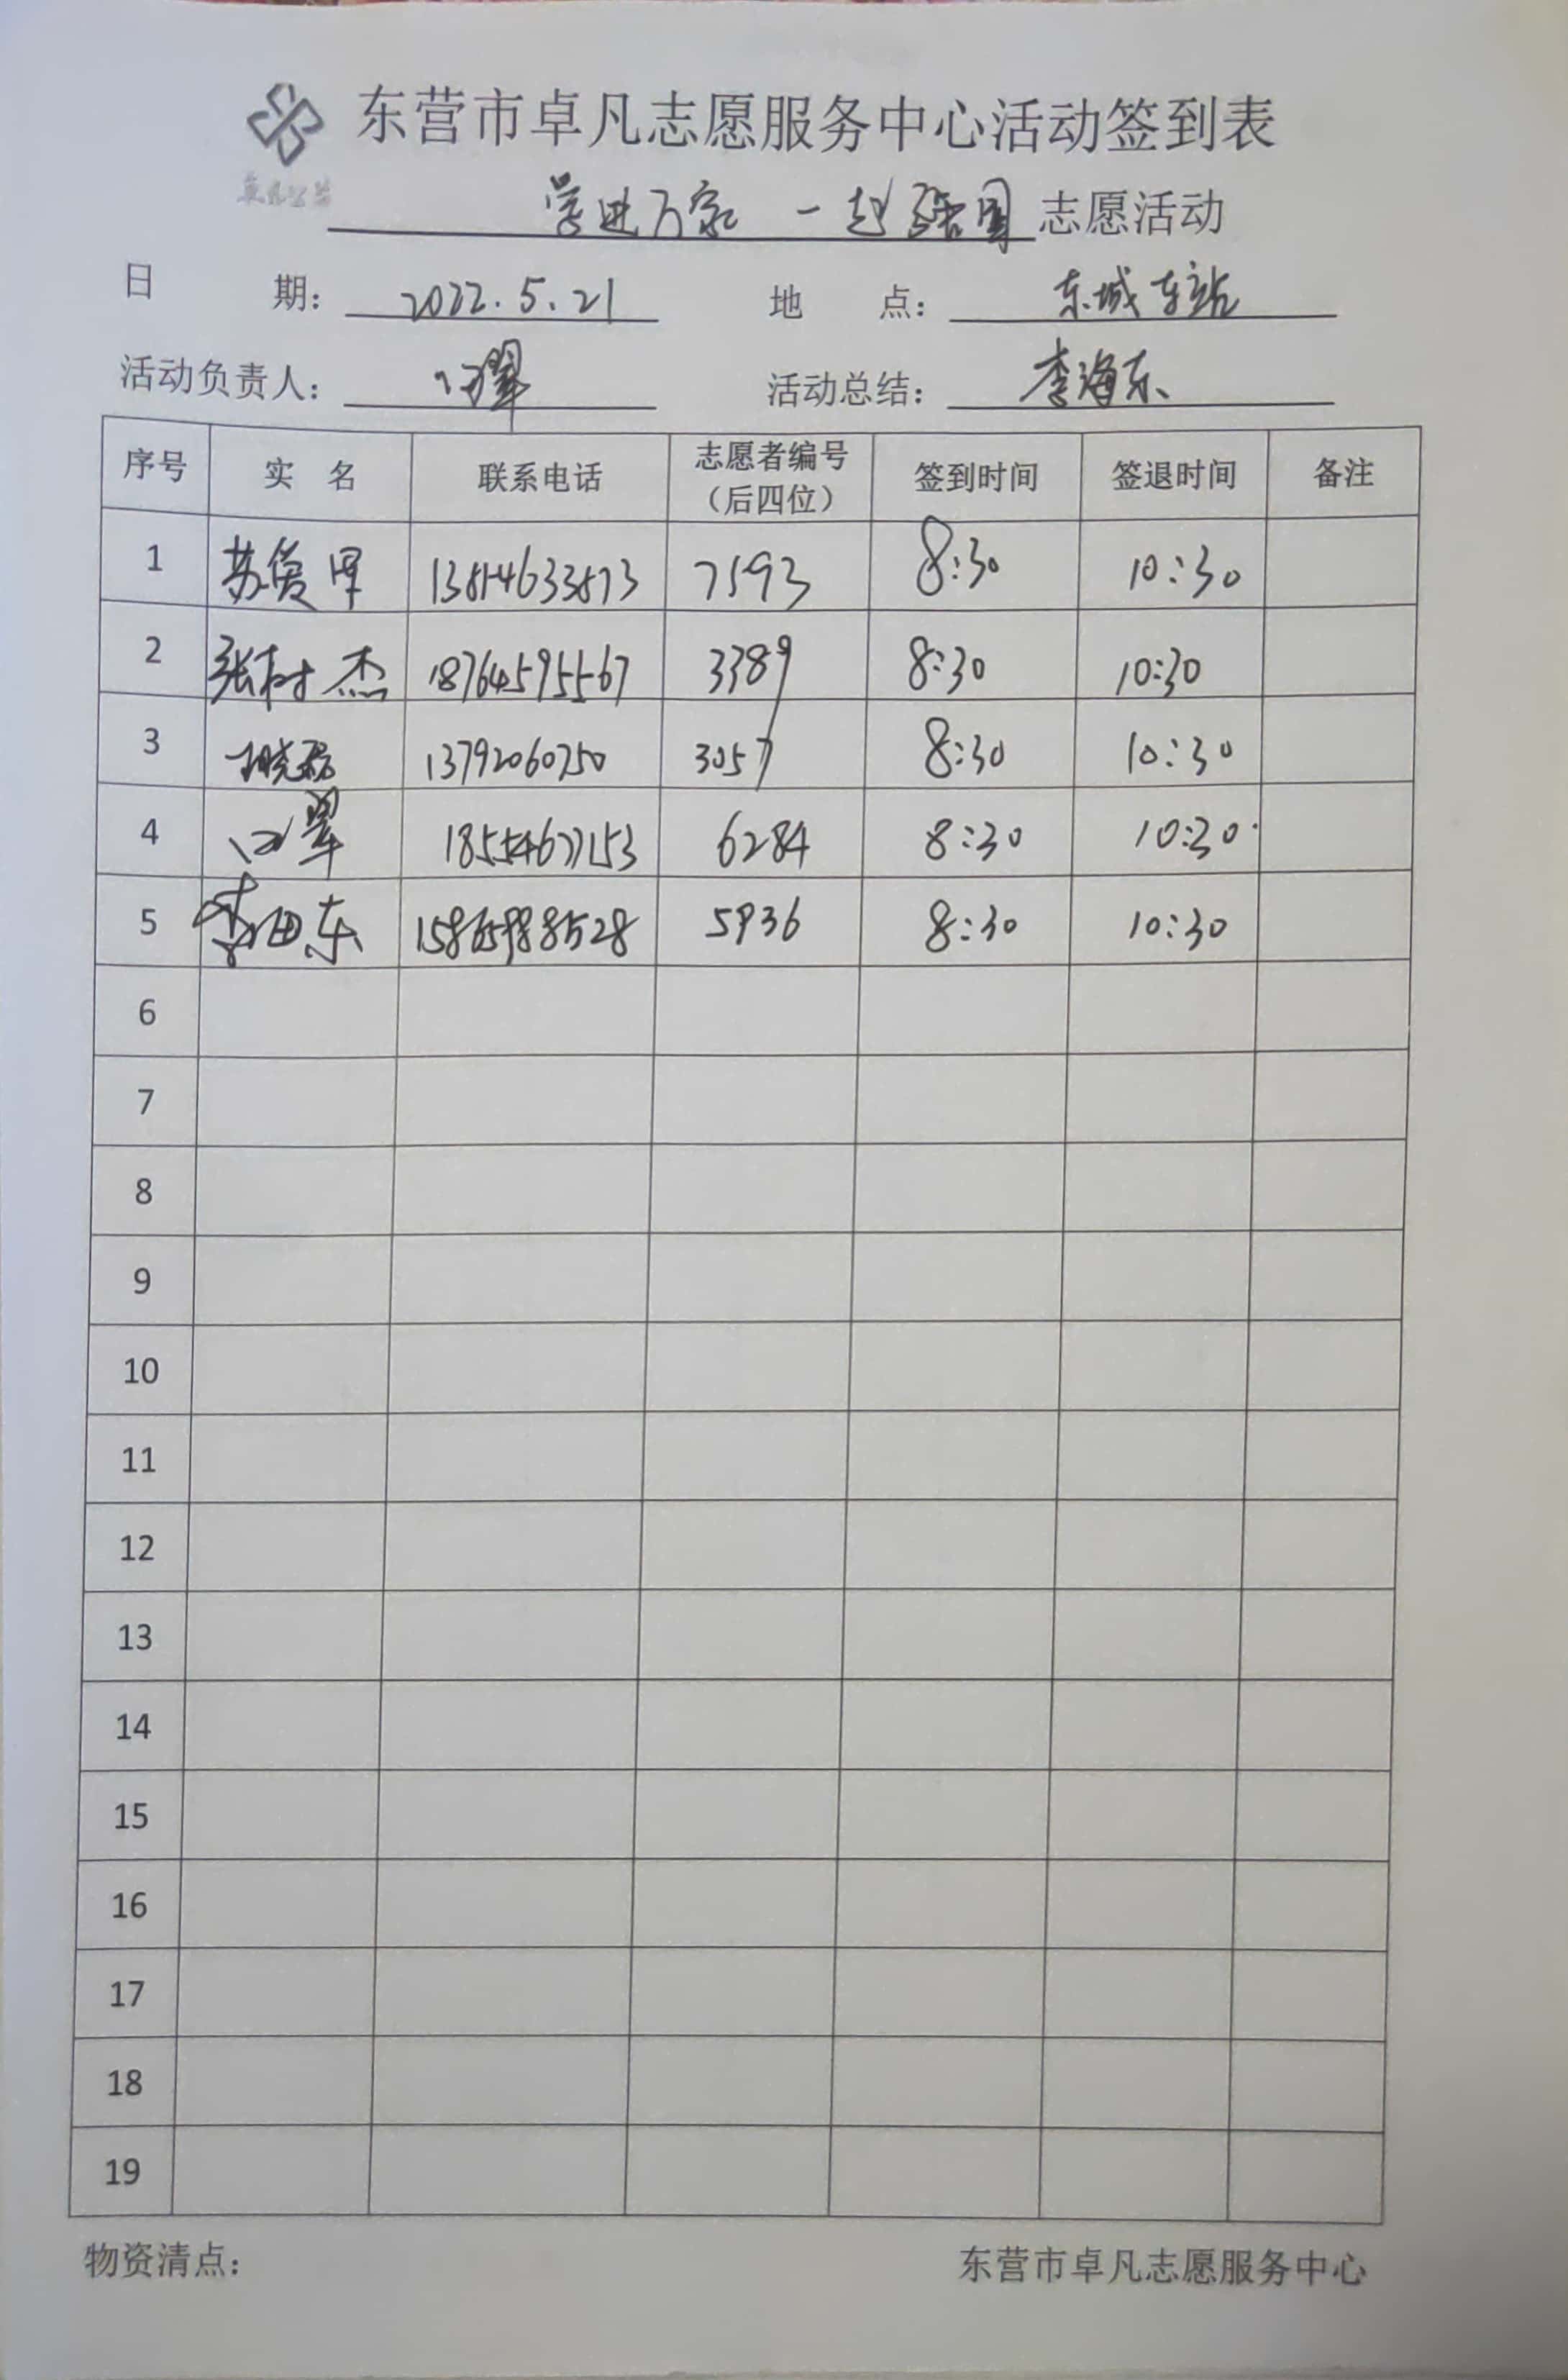 东营市卓凡志愿服务中心活动签到表
卓凡公益
学进万家 一起强国 志愿活动
日 期: 2022.5.21 地 点: 东城车站
活动负责人: 活动总结: 李海东
序号 实 名 联系电话 志愿者编号(后四位) 签到时间 签退时间 备注
1 苏俊军 7593 8:30 10:30
2 张树杰 18764595567 3389 8:30 10:30
3 13792060750 3057 8:30 10:30
4 18554677153 6284 8:30 10:30
5 15865988528 5936 8:30 10:30
6
7
8
9
10
11
12
13
14
15
16
17
18
19
物资清点: 东营市卓凡志愿服务中心